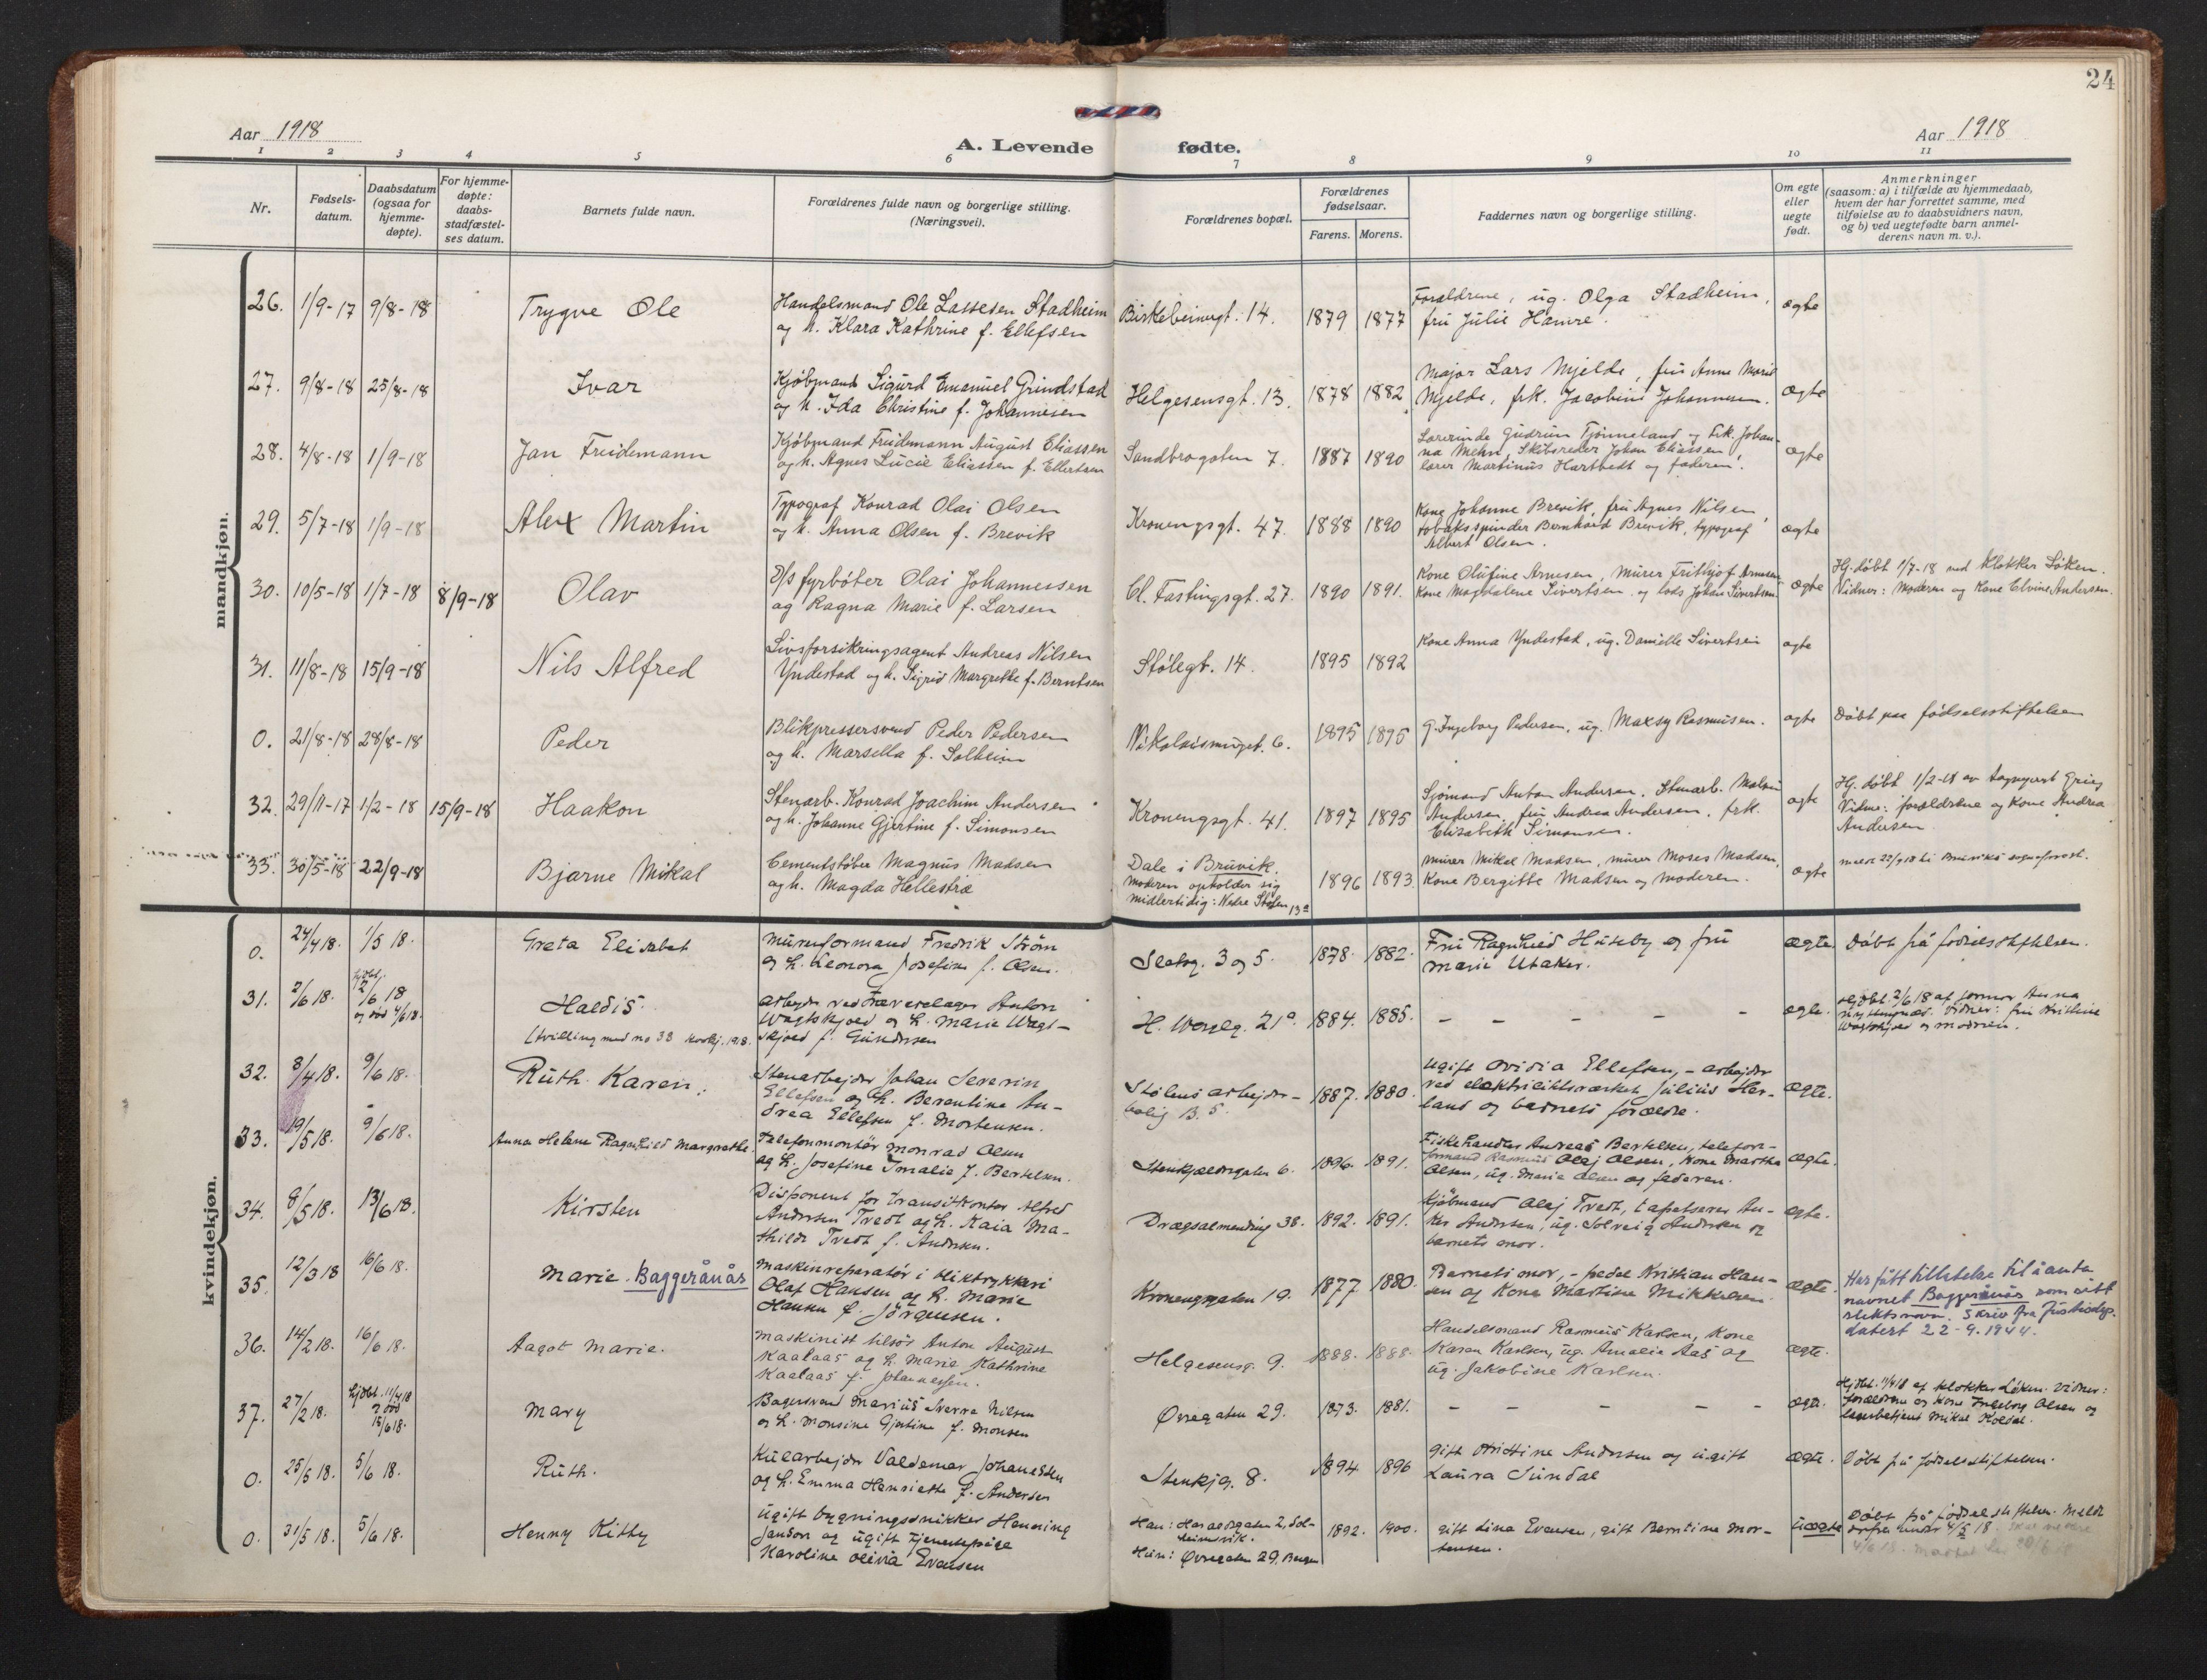 24
Aar 1918
A. Levende fødte.
Aar 1918
1 2 3 4 5 6 7 8 9 10 11
Nr.
Fødsels-
datum.
Daabsdatum
(ogsaa for
hjemme-
døpte).
For hjemme-
døpte:
daabs-
stadfæstel-
ses datum.
Barnets fulde navn.
Forældrenes fulde navn og borgerlige stilling.
(Næringsvei).
Forældrenes bopæl.
Forældrenes
fødselsaar.
Farens. Morens.
Faddernes navn og borgerlige stilling.
Om egte
eller
uegte
født.
Anmerkninger
(saasom: a) i tilfælde av hjemmedaab,
hvem der har forrettet samme, med
tilføielse av to daabsvidners navn,
og b) ved uegtefødte barn anmel-
derens navn m. v.).
mandkjøn.
26. 1/9-17 9/8-18 Trygve Ole
Handelsmand Ole Lassesen Stadheim
og h. Klara Kathrine f. Ellefsen
Birkebeinergt. 14. 1879 1877
Forældrene, ug. Olga Stadheim,
fru Julie Hamre.
ægte
27. 9/8-18 25/8-18 Ivar
Kjøbmand Sigurd Emanuel Grindstad
og h. Ida Christine f. Johannesen
Helgesensgt. 13. 1878 1882
Major Lars Mjelde, fru Anne Marie
Mjelde, frk. Jacobine Johannesen.
ægte
28. 4/8-18 1/9-18 Jan Freidemann
Kjøbmand Freidemann August Eliassen
og h. Agnes Lucie Eliassen f. Ellertsen
Sandbrogaten 7. 1887 1890
Lærerinde Gudrun Tjønneland og frk. Johan-
na Mehn, Skibsreder Johan Eliassen,
lærer Martinus Hartvedt og faderen.
ægte
29. 5/7-18 1/9-18 Alex Martin
Typograf Konrad Olai Olsen
og h. Anna Olsen f. Brevik
Kronengsgt. 47. 1888 1890
Kone Johanne Brevik, fru Agnes Nilsen,
tobaksspinder Bernhard Brevik, typograf
Albert Olsen.
ægte
30. 10/5-18 1/7-18 8/9-18 Olav
D/s fyrbøter Olai Johannessen
og Ragna Marie f. Larsen
Cl. Fastingsgt. 27. 1890 1891.
Kone Olufine Arnesen, murer Frithjof Arnesen,
Kone Magdalene Sivertsen og lods Johan Sivertsen
ægte
Hj. døbt 1/7-18 ved Klokker Løken.
Vidner: Moderen og Kone Elvine Andersen.
31. 11/8-18 15/9-18 Nils Alfred
Livsforsikringsagent Andreas Nilsen
Yndestad og h. Sigrid Margrethe f. Berntsen
Stølegt. 14. 1895 1892
Kone Anna Yndestad, ug. Danielle Sivertsen
ægte
0. 21/8-18 28/8-18 Peder
Blikpressersvend Peder Pedersen
og h. Marsella f. Solheim
Nikolaismuget. 6. 1895 1895
G. Ingeborg Pedersen, ug. Maxsy Rasmusen.
ægte
Døbt paa fødselsstiftelsen
32. 29/11-17 1/2-18 15/9-18 Haakon
Stenarb. Konrad Joachim Andersen
og h. Johanne Gjertine f. Simonsen
Kronengsgt. 41. 1897 1895
Sjømand Anton Andersen, Stenarb. Malvin
Andersen, fru Andrea Andersen, frk.
Elizabeth Simonsen.
ægte
Hj. døbt 1/2-18 av Sogneprest Grieg
Vidner: forældrene og Kone Andrea
Andersen.
33. 30/5-18 22/9-18 Bjarne Mikal
Cementstøber Magnus Madsen
og h. Magda Hellestræ
Dale i Bruvik.
Moderen opholder sig
midlertidig: Nedre Stølen 13a
1896 1893.
Murer Mikal Madsen, murer Moses Madsen,
Kone Bergitte Madsen og Moderen.
ægte
meldt 22/9 18 til Bruviks sogneprest.
kvindekjøn.
0. 24/4 18. 1/5 18. Greta Elisabet
Murerformand Fredrik Strøm
og h. Leonora Josefine f. Olsen.
Sletog. 3 og 5. 1878. 1882.
Fru Ragnhild Huseby og fru
Marie Utaker.
ægte.
Døbt på fødselsstiftelsen.
31. 2/6 18. hjdbt. 2/6 18
og død 4/6 18.
Haldis.
(tvilling med no 38 hankj. 1918.
arbeyder ved trævarelager Anton
Wagtskjold og h. Marie Wagt-
skjold f. Gundersen
H. Wergelg. 21a. 1884. 1885.
- - - - -
ægte.
Hjdbt. 2/6 18 af jormor Anna
Wagtskjold og moderen.
32. 8/4 18. 9/6 18. Ruth Karen.
Stenarbejder Johan Severin
Ellefsen og h. Berentine An-
drea Ellefsen f. Mortensen.
Stølens arbejder-
bolig B. 5. 1887. 1880.
Ugift Ovidia Ellefsen, - arbejder
ved elektricitetsværket Julius Her-
land og barnets forældre.
ægte.
33. 19/5 18. 9/6 18. Anna Helene Ragnhild Margrethe.
Telefonmontør Monrad Olsen
og h. Josefine Amalie f. Bertelsen.
Stenkjeldergaten 6. 1896. 1891.
Fiskehandler Andreas Bertelsen, telefon-
formand Rasmus Olaj Olsen, kone Martha
Olsen, ug. Marie Olsen og faderen.
ægte.
34. 8/5 18. 13/6 18. Kirsten
Disponent for transitkontor Alfred
Andersen Tvedt og h. Kaia Ma-
thilde Tvedt f. Andersen.
Drægsalmending 38. 1892. 1891.
Kjøbmand Olaj Tvedt, tapetserer An-
ker Andersen, ug. Solveig Andersen og
barnets mor.
ægte.
35. 12/3 18 16/6 18. Marie. Baggerånås
Maskinreparatør i bliktrykkeri
Olaf Hansen og h. Marie
Hansen f. Jørgensen.
Kronengsgaten 19. 1877 1880.
Barnets mor, - pedel Kristian Han-
sen og kone Martine Mikkelsen.
ægte.
Har fått tillatelse til å anta
navnet Baggerånås som sitt
slektsnavn. Skriv fra Justisdep.
datert 22-9.1944.
36. 14/2 18. 16/6 18. Aagot Marie.
Maskinist tilsjøs Anton August
Kaalaas og h. Marie Kathrine
Kaalaas f. Johannessen.
Helgesensg. 9. 1888. 1888.
Handelsmand Rasmus Karlsen, kone
Karen Karlsen, ug. Amalie Aas og
ug. Jakobine Karlsen.
ægte.
37. 27/2 18. hjdbt. 11/4 18
og død
15/6 18.
Mary
Bagersvend Marius Sverre Nilsen
og h. Monsine Gjertine f. Monsen
Øvregaten 29. 1873. 1881.
- - - - -
ægte.
Hjdbt. 11/4 18 af klokker Løken. Vidner:
forældrene og kone Ingeborg Olsen og
lagerbetjent Mikal Koldal.
0. 25/5 18. 5/6 18. Ruth.
Kularbejder Valdemar Johanessen
og h. Emma Henriette f. Andersen
Stenkjg. 8. 1894 1896
gift Kristine Andersen og ugift
Laura Sundal
ægte.
Døbt på fødselsstiftelsen.
0. 31/5 18. 5/6 18. Henny Kitty
ugift bygningssnikker Henning
Janson og ugift tjenestepige
Karoline Olivia Evensen
Han: Haraldsgaten 2, Sol-
heimsvik.
Hun: Øvregaten 29, Bergen
1892. 1900.
gift Lina Evensen, gift Berntine Mor-
tensen.
uægte
Døbt på fødselsstiftelsen. Meldt
derfra under 4/6 18.